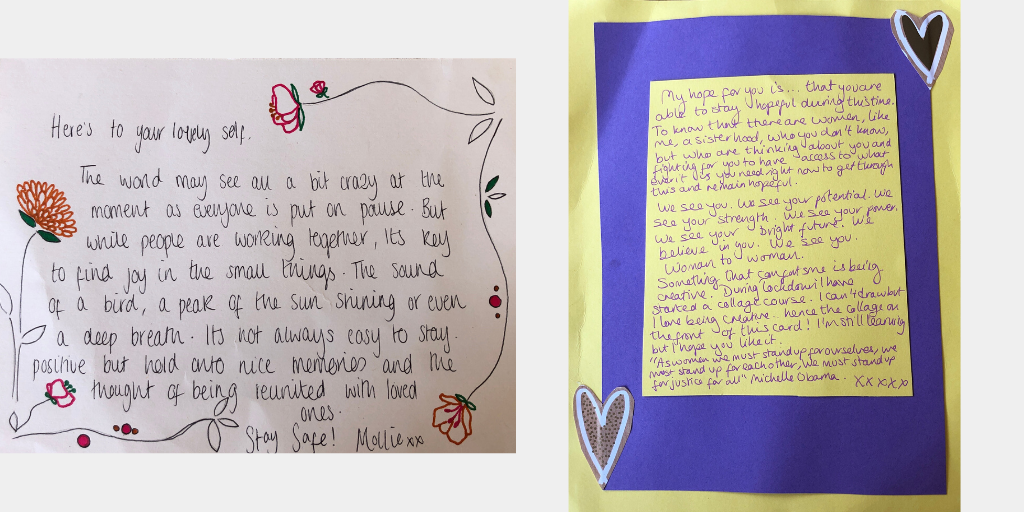 Here's to your lovely self.
The world may see all a bit crazy at the
moment as everyone is put on pause. But
while people are working together, Its key
to find joy in the small things. The sound
of a bird, a peak of the sun shining or even
a deep breath. Its not always easy to stay
positive but hold onto nice memories and the
thought of being reunited with loved
ones.
Stay Safe! Mollie xx
My hope for you is... that you are
able to stay hopeful during this time.
To know that there are women, like
me, a sisterhood, who you don't know,
but who are thinking about you and
fighting for you to have access to what
ever it is you need right now to get through
this and remain hopeful.
We see you. We see your potential. We
see your strength. We see your power.
We see your bright future. We
believe in you. We see you.
Woman to woman.
Something that comforts me is being
creative. During lockdown I have
started a collage course. I can't draw but
I love being creative. hence the collage on
the front of this card! I'm still learning
but I hope you like it.
"As women we must stand up for ourselves, we
must stand up for each other, we must stand up
for justice for all" Michelle Obama. XX XX XX